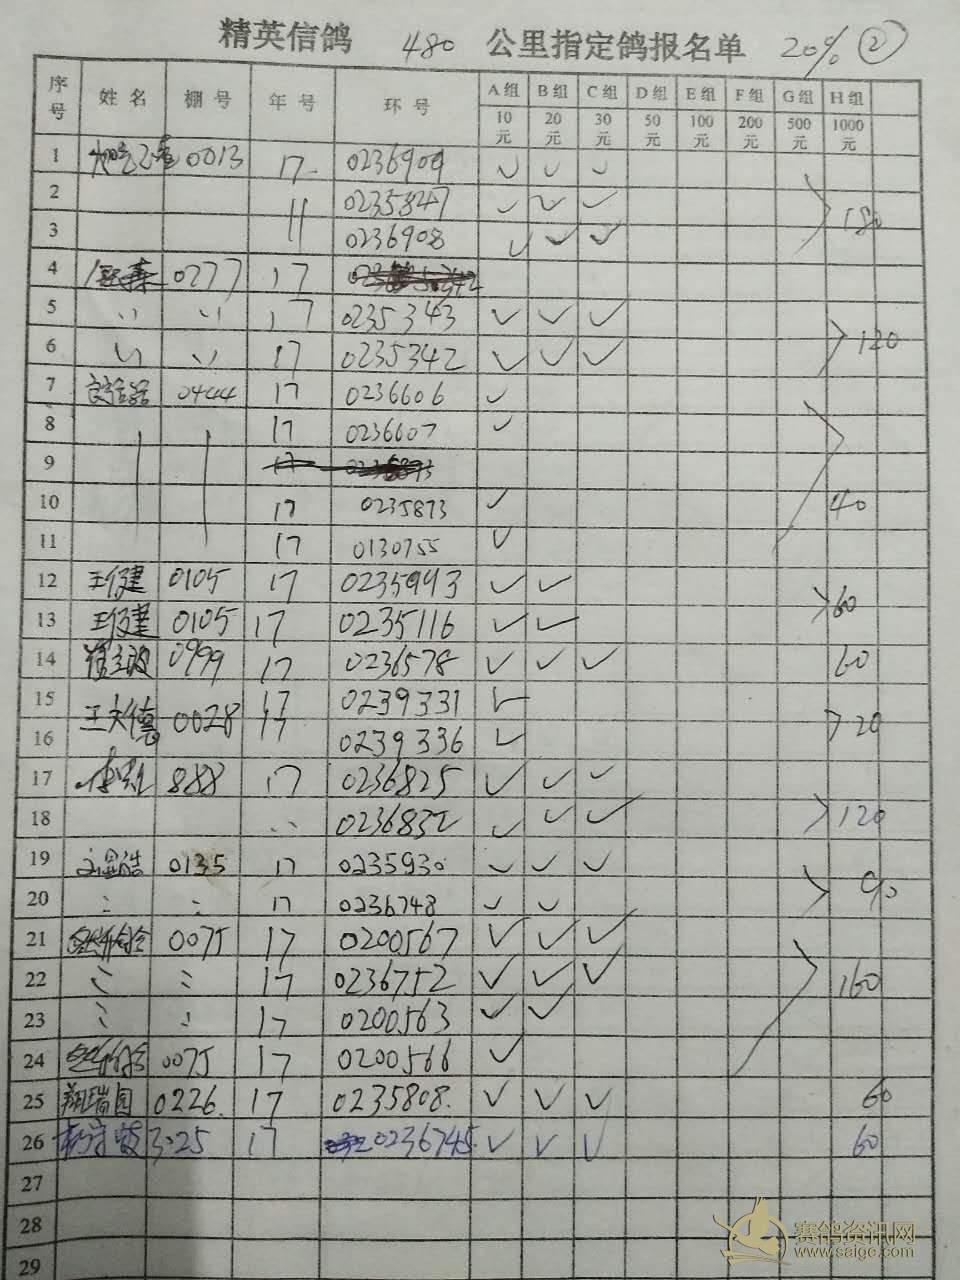 精英信鸽 480 公里指定鸽报名单 20% ②
序号 姓名 棚号 年号 环号 A组 B组 C组 D组 E组 F组 G组 H组
10元 20元 30元 50元 100元 200元 500元 1000元
1 0013 17 0236909 ✓ ✓ ✓
2 〃 0235847 ✓ ✓ ✓ 180
3 0236908 ✓ ✓ ✓
4 0277 17
5 〃 〃 17 0235343 ✓ ✓ ✓ 120
6 〃 〃 17 0235342 ✓ ✓ ✓
7 0444 17 0236606 ✓
8 17 0236607 ✓
9
10 17 0235873 ✓ 40
11 17 0130755 ✓
12 王俊建 0105 17 0235943 ✓ ✓ 60
13 王俊建 0105 17 0235116 ✓ ✓
14 0999 17 0236578 ✓ ✓ ✓ 60
15 17 0239331 ✓
王大德 0028 20
16 17 0239336 ✓
17 888 17 0236825 ✓ ✓ ✓
18 〃 0236832 ✓ ✓ ✓ 120
19 0135 17 0235930 ✓ ✓ ✓ 90
20 〃 〃 17 0236748 ✓ ✓
21 0075 17 0200567 ✓ ✓ ✓
22 〃 〃 17 0236752 ✓ ✓ ✓ 160
23 〃 〃 17 0200563 ✓ ✓
24 0075 17 0200566 ✓
25 翔瑞园 0226 17 0235808 ✓ ✓ ✓ 60
26 17 0236745 ✓ ✓ ✓ 60
27
28
29
赛鸽资讯网
www.saige.com